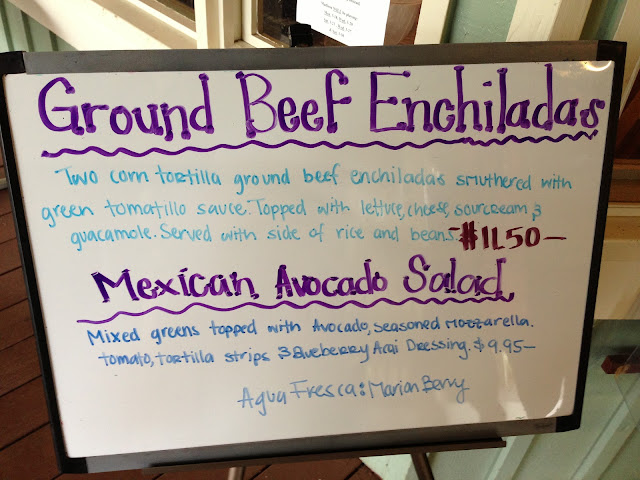 Ground Beef Enchiladas
Two corn tortilla ground beef enchiladas smuthered with
green tomatillo sauce. Topped with lettuce, cheese, sourcream &
guacamole. Served with side of rice and beans - $11.50 —
Mexican Avocado Salad
Mixed greens topped with Avocado, seasoned mozzarella.
tomato, tortilla strips & Blueberry Acai Dressing. $9.95 —
Agua Fresca: Marion Berry